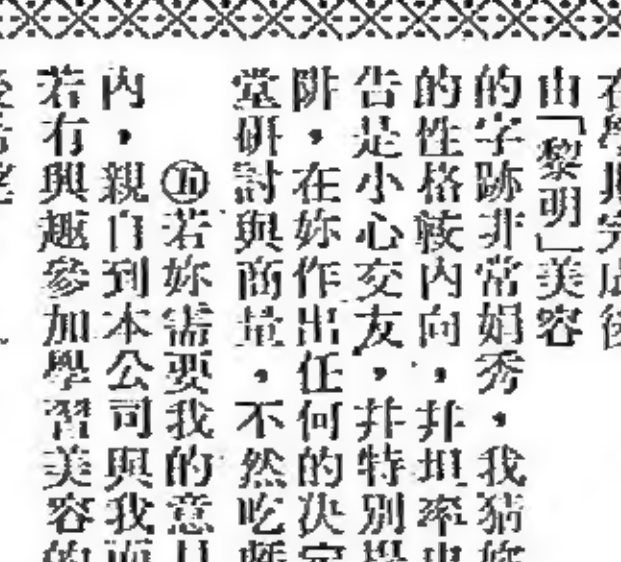 在學期完成後
由「黎明」美容
的字跡非常娟秀，我猜
的性格較內向，並坦率
告是小心交友，並特別
陫，在妳作出任何的決定
堂研討與商量，不然吃
㊄若妳需要我的意
內，親自到本公司與我
若有興趣參加學習美容的